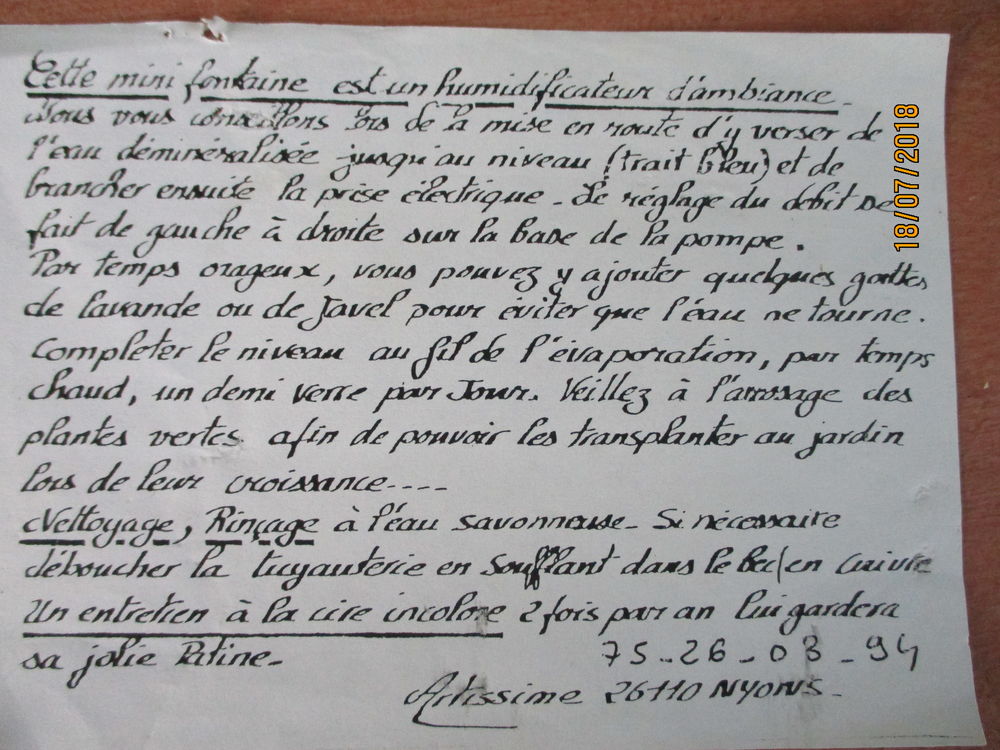 Cette mini fontaine est un humidificateur d'ambiance.
Nous vous conseillons lors de la mise en route d'y verser de
l'eau déminéralisée jusqu'au niveau (trait bleu) et de
brancher ensuite la prise électrique - Le réglage du débit se
fait de gauche à droite sur la base de la pompe.
Par temps orageux, vous pouvez y ajouter quelques gouttes
de lavande ou de Javel pour éviter que l'eau ne tourne.
Completer le niveau au fil de l'évaporation, par temps
chaud, un demi verre par Jour. Veillez à l'arrosage des
plantes vertes afin de pouvoir les transplanter au jardin
lors de leur croissance----
Nettoyage, Rinçage à l'eau savonneuse - Si nécessaire
déboucher la tuyauterie en soufflant dans le bec en cuivre
Un entretien à la cire incolore 2 fois par an lui gardera
sa jolie Patine -
75-26-03-94
Artissime 26110 NYONS -
18/07/2018